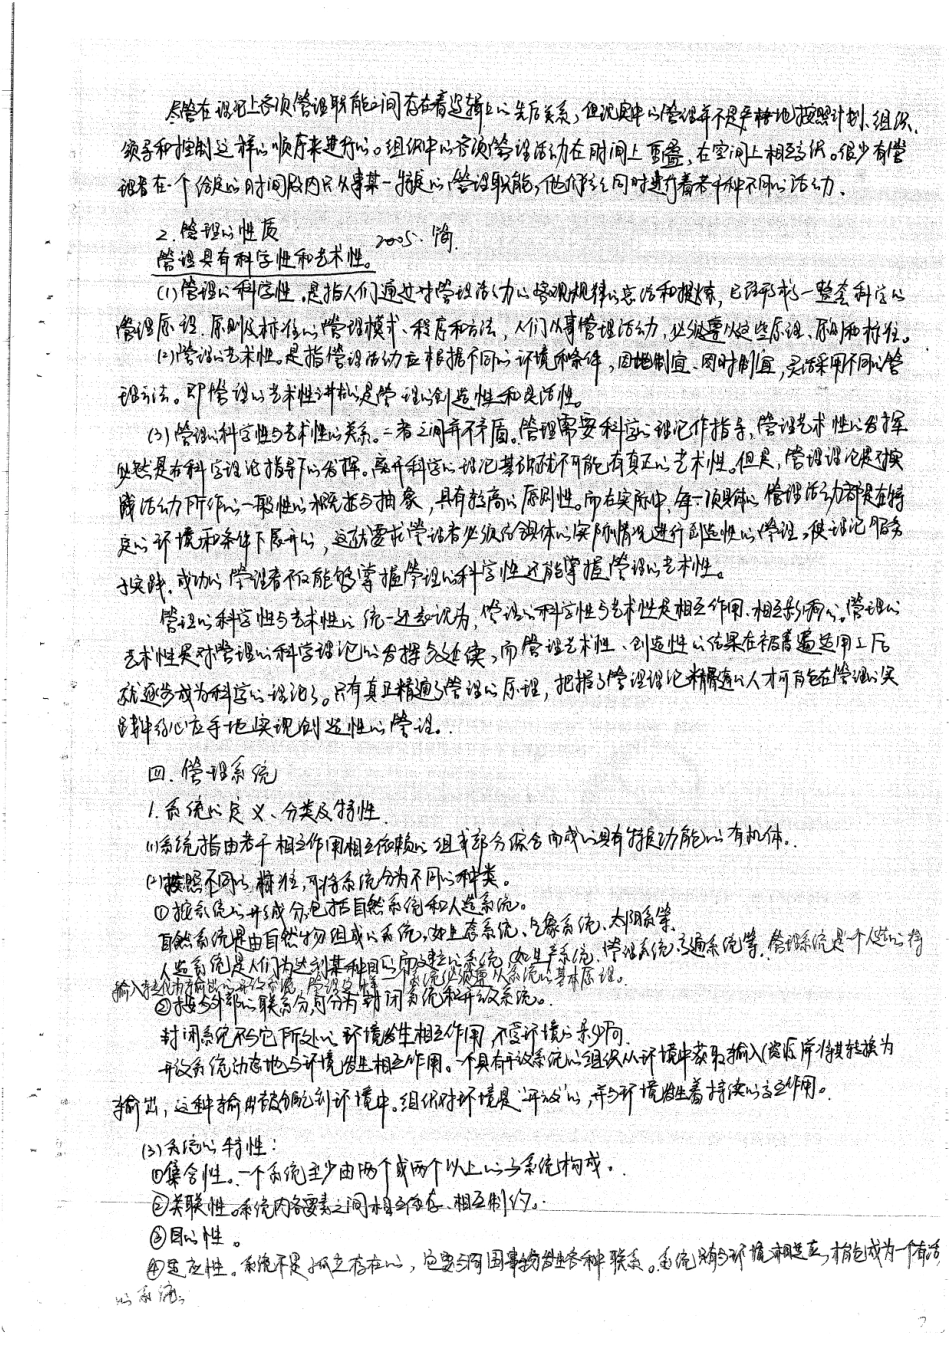 尽管在理论上各项管理职能之间存在着逻辑上的先后关系,但现实中的管理并不是严格地按照计划、组织、
领导和控制这样的顺序来进行的。组织中的各项管理活动在时间上重叠,在空间上相互交织。很少有管
理者在一个给定的时间段内只从事某一特定的管理职能,他们往往同时进行着若干种不同的活动.
2.管理的性质 2005.简.
管理具有科学性和艺术性。
(1)管理的科学性,是指人们通过对管理活动的客观规律的总结和提炼,已经形成了一整套科学的
管理原理、原则及标准的管理模式、程序和方法,人们从事管理活动,必须遵从这些原理、原则和标准。
(2)管理的艺术性。是指管理活动应根据不同的环境和条件,因地制宜、因时制宜,灵活采用不同的管
理方法。即管理的艺术性讲的是管理的创造性和灵活性。
(3)管理的科学性与艺术性的关系。二者之间并不矛盾。管理需要科学的理论作指导,管理艺术性的发挥
必然是在科学理论指导下的发挥。离开科学的理论基础就不可能有真正的艺术性。但是,管理理论是对实
践活动所作的一般性的概括与抽象,具有较高的原则性。而在实际中,每一项具体的管理活动都是在特
定的环境和条件下展开的,这就要求管理者必须结合具体的实际情况进行创造性的管理,使理论服务
于实践.成功的管理者不仅能够掌握管理的科学性还能掌握管理的艺术性。
管理的科学性与艺术性的统一还认为,管理的科学性与艺术性是相互作用、相互影响的。管理的
艺术性是对管理的科学理论的发挥与延续,而管理艺术性、创造性的结果在被普遍运用之后
就逐步成为科学的理论了。只有真正精通了管理的原理,把握了管理理论精髓的人才可能在管理的实
践中得心应手地实现创造性的管理.
四.管理系统
1.系统的定义、分类及特性.
(1)系统指由若干相互作用相互依赖的组成部分综合而成的具有特定功能的有机体.
(2)按照不同的标准,可将系统分为不同的种类。
①按系统的形成分,包括自然系统和人造系统。
自然系统是由自然物组成的系统,如生态系统、气象系统、太阳系等.
人造系统是人们为达到某种目的而建立的系统,如生产系统、管理系统、交通系统等.管理系统是一个人造的将
输入转化为输出的开放系统,管理这样一个系统必须遵从系统的基本原理。
②按与外部的联系分,可分为封闭系统和开放系统。
封闭系统不与它所处的环境发生相互作用,不受环境的影响.
开放系统动态地与环境发生相互作用。一个具有开放系统的组织从环境中获取输入(资源)并将其转换为
输出,这种输出被分配到环境中。组织对环境是“开放”的,并与环境发生着持续的交互作用。
(3)系统的特性:
①集合性.一个系统至少由两个或两个以上的子系统构成.
②关联性。系统内各要素之间相互依存、相互制约.
③目的性。
④适应性。系统不是孤立存在的,它要与周围事物发生各种联系。系统只有与环境相适应,才能成为一个有活
的系统
2